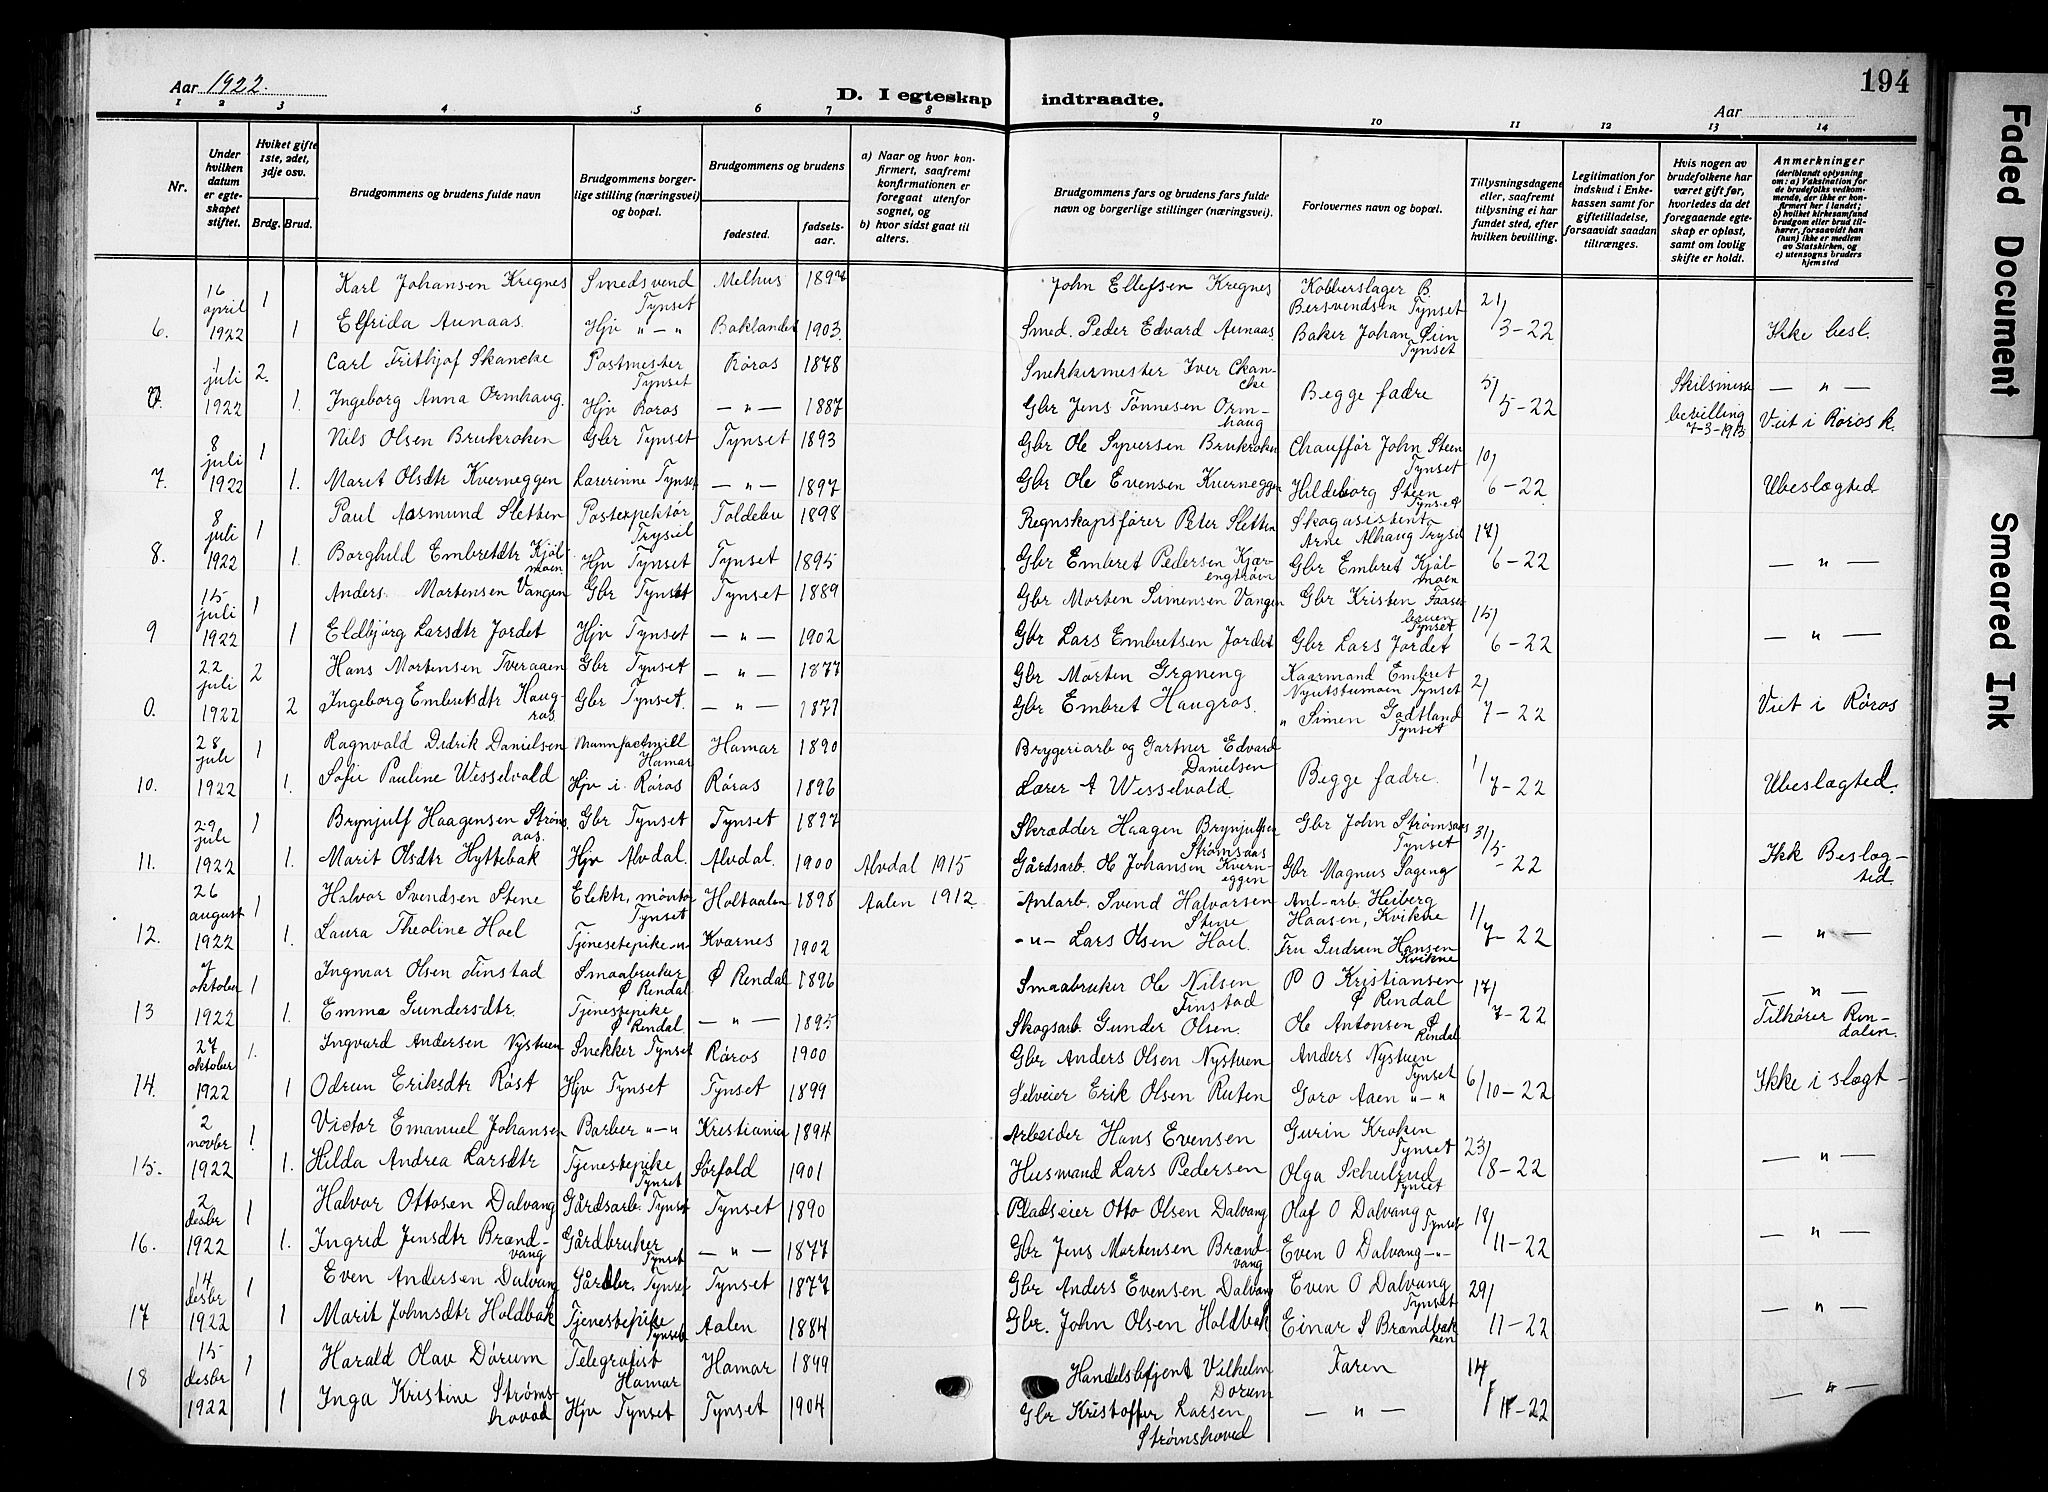 Aar 1922.
D. I egteskap indtraadte.
Aar
194
1 2 3 4 5 6 7 8 9 10 11 12 13 14
Nr.
Under hvilken datum er egteskapet stiftet.
Hviket gifte 1ste, 2det, 3dje osv.
Brdg. Brud.
Brudgommens og brudens fulde navn
Brudgommens borgerlige stilling (næringsvei) og bopæl.
Brudgommens og brudens
fødested. fødselsaar.
a) Naar og hvor konfirmert, saafremt konfirmationen er foregaat utenfor sognet, og
b) hvor sidst gaat til alters.
Brudgommens fars og brudens fars fulde navn og borgerlige stillinger (næringsvei).
Forlovernes navn og bopæl.
Tillysningsdagene eller, saafremt tillysning ei har fundet sted, efter hvilken bevilling.
Legitimation for indskud i Enkekassen samt for giftetilladelse, forsaavidt saadan tiltrænges.
Hvis nogen av brudefolkene har været gift før, hvorledes da det foregaaende egteskap er opløst, samt om lovlig skifte er holdt.
Anmerkninger (deriblandt oplysning om: a) Vaksination for de brudefolks vedkommende, der ikke er konfirmert her i landet; b) hvilket kirkesamfund brudgom eller brud tilhører, forsaavidt han (hun) ikke er medlem av Statskirken, og c) utensogns bruders hjemsted
16 april 1 Karl Johansen Kregnes Smedsvend Tynset Melhus 1897 John Ellefsen Kregnes Kobberslager B. Bersvendsen Tynset 21/
6. 1922 1 Elfrida Aunaas. Hjv „ Baklandet 1903. Smed. Peder Edvard Aunaas. Baker Johan Øien Tynset 3-22 Ikke besl.
1 juli 2. Carl Frithjof Skancke Postmester Tynset Røros 1878 Snekkermester Iver Skancke Begge fædre 5/ Skilsmisse — „ —
0. 1922 1. Ingeborg Anna Ormhaug. Hjv Røros — „ — 1887 Gbr Jens Tønnesen Ormhaug 5-22 bevilling 7-3-1913 Viet i Røros k.
8 juli 1 Nils Olsen Brukroken Gbr Tynset Tynset 1893 Gbr Ole Syversen Brukroken Chauffør John Steen Tynset 10/
7. 1922 1. Marit Olsdtr Kverneggen Lærerinne Tynset — „ — 1897 Gbr Ole Evensen Kverneggen Hildeborg Steen Tynset 6-22 Ubeslægted
8 juli 1 Paul Aasmund Sletten Postexpektør Trysil Toldelev 1898 Regnskapsfører Peter Sletten Skogasistent Arne Alhaug Trysil 17/
8. 1922 1. Borghild Embretdtr Kjølmoen Hjv Tynset Tynset 1895 Gbr Embret Pedersen Gbr Embret Kjølmoen 6-22 — „ —
15 juli 1 Anders Mortensen Vangen Gbr Tynset Tynset 1889 Gbr Morten Simensen Vangen Gbr Kristen Tynset 15/
9 1922 1 Eldbjørg Larsdtr Jordet Hjv Tynset — „ — 1902 Gbr Lars Embretsen Jordet Gbr Lars Jordet 6-22 — „ —
22 juli 2 Hans Mortensen Tveraaen Gbr Tynset — „ — 1877 Gbr Morten Graneng Kaarmand Embret Nyutstumoen Tynset 2/
0. 1922 2 Ingeborg Embretsdtr Haugros Gbr Tynset. — „ — 1871 Gbr Embret Haugros. „ Simen Godtland Tynset 7-22 Viet i Røros
28 juli 1 Ragnvald Didrik Danielsen Hamar Hamar 1890 Brygeriarb og Gartner Edvard Danielsen Begge fædre. 1/
10. 1922 1. Sofie Pauline Wesselvold Hjv i Røros Røros 1896 Lærer A Wesselvold. 7-22 Ubeslægted.
29 juli 1 Brynjulf Haagensen Strømsaas. Gbr Tynset Tynset 1897 Skrædder Haagen Brynjulfsen Strømsaas Gbr John Strømsaas Tynset 31/
11. 1922 1. Marit Olsdtr Hyttebak Hjv Alvdal. Alvdal. 1900 Alvdal 1915 Gårdsarb. O Johansen Kverneggen Gbr Magnus Sageng 5-22 Ikk Beslogted.
26 august 1 Halvor Svendsen Stene Elektr. montør Tynset Holtaalen 1898 Aalen 1912. Anlarb. Svend Halvorsen Stene Anl-arb. Heiberg Haasen, Kvikne 1/
12. 1922 1. Laura Theoline Hoel Tjenestepike -„- Kvernes 1902 -„- Lars Olsen Hoel. Fru Gudrun Hansen Kvikne 7-22 — „ —
7 oktober 1 Ingmar Olsen Finstad Smaabruker Ø Rendal Ø Rendal 1896 Smaabruker Ole Nilsen Finstad P O Kristiansen Ø Rendal 17/ — „ —
13 1922 1. Emma Gundersdtr. Tjenestepike Ø Rendal — „ — 1895 Skogsarb. Gunder Olsen. Ole Antonsen Ø Rendal 7-22 Tilhører Rendalen.
27 oktober 1. Ingvard Andersen Nystuen Snekker Tynset Røros 1900 Gbr Anders Olsen Nystuen Anders Nystuen Tynset 6/
14. 1922 1 Odrun Eriksdtr Røst Hjv Tynset Tynset 1899 Selveier Erik Olsen Ruten Goro Aaen „-„ 10-22 Ikke i slægt -
2 novbr 1. Victor Emanuel Johansen Barber „-„ Kristiania 1894 Arbeider Hans Evensen Gurin Kroken Tynset 23/
15. 1922 1. Hilda Andrea Larsdtr Tjenestepike Tynset Sørfold 1901 Husmand Lars Pedersen Olga Schulrud Tynset 8-22 — „ —
2 desbr 1 Halvor Ottosen Dalvang Gårdsarb. Tynset Tynset 1890 Pladseier Otto Olsen Dalvang Olaf O Dalvang Tynset 18/
16. 1922 1. Ingrid Jensdtr Brændvang Gårdbruker Tynset — „ — 1877 Gbr Jens Mortensen Brændvang Even O Dalvang -„- 11-22 — „ —
14 desbr 1 Even Andersen Dalvang Gårdbr. Tynset Tynset 1877 Gbr Anders Evensen Dalvang Even O Dalvang Tynset 29/
17 1922 1 Marit Johnsdtr Holdbak Tjenestepike Tynset Aalen 1884 Gbr. John Olsen Holdbak Einar S Brændbakken 11-22 — „ —
15 desbr 1 Harald Olav Dørum Telegrafist Hamar Hamar 1899 Handelsbetjent Vilhelm Dørum Faren 14/
18 1922 1 Inga Kristine Strømshovod Hjv Tynset Tynset 1904 Gbr Kristoffer Larsen Strømshoved — „ — 11-22 — „ —
Faded Document
Smeared Ink